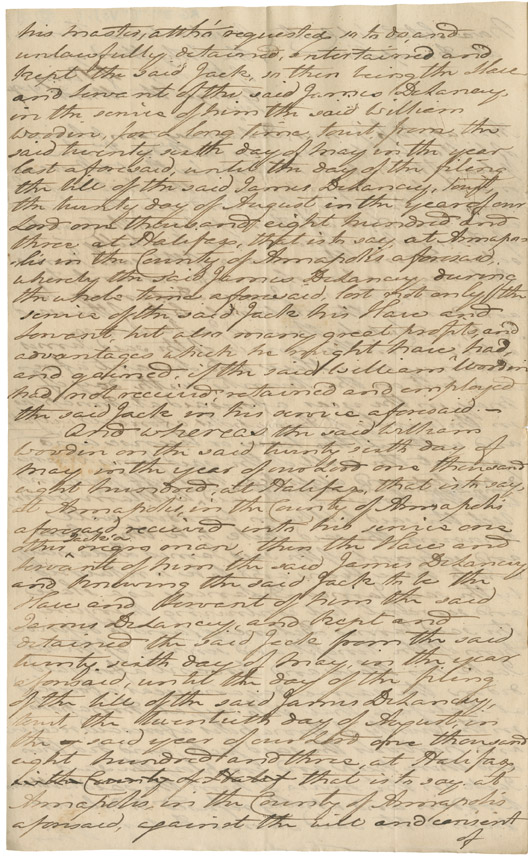 his master, altho' requested so to do and
unlawfully detained, entertained and
kept the said Jack, so then being the Slave
and Servant of the said James Delancey,
in the service of him the said William
Wooden, for a long time, to wit, from the
said twenty sixth day of May in the year
last aforesaid, until the day of the filing
the bill of the said James Delancey, to wit
the twenty day of August in the year of our
Lord one thousand eight hundred and
three at Halifax, that is to say at Annapo-
-lis in the County of Annapolis aforesaid,
whereby the said James Delancey during
the whole time aforesaid, lost not only the
service of the said Jack his Slave and
Servant, but also many great profits, and
advantages which he might have had,
and gained, if the said William Wooden
had not received, retained and employed
the said Jack in his service aforesaid. —
And whereas the said William
Wooden on the said twenty sixth day of
May in the year of our Lord one thousand
eight hundred, at Halifax, that is to say
at Annapolis, in the County of Annapolis
aforesaid, received into his service one
other Jack a negro man, then the Slave and
Servant of him the said James Delancey
and knowing the said Jack to be the
Slave and Servant of him the said
James Delancey, and kept and
detained the said Jack from the said
twenty sixth day of May, in the year
aforesaid, until the day of the filing
of the bill of the said James Delancey,
to wit, the twentieth day of August, in
the said year of our Lord one thousand
eight hundred and three, at Halifax,
in the County of that is to say at
Annapolis, in the County of Annapolis
aforesaid, against the will and consent
of